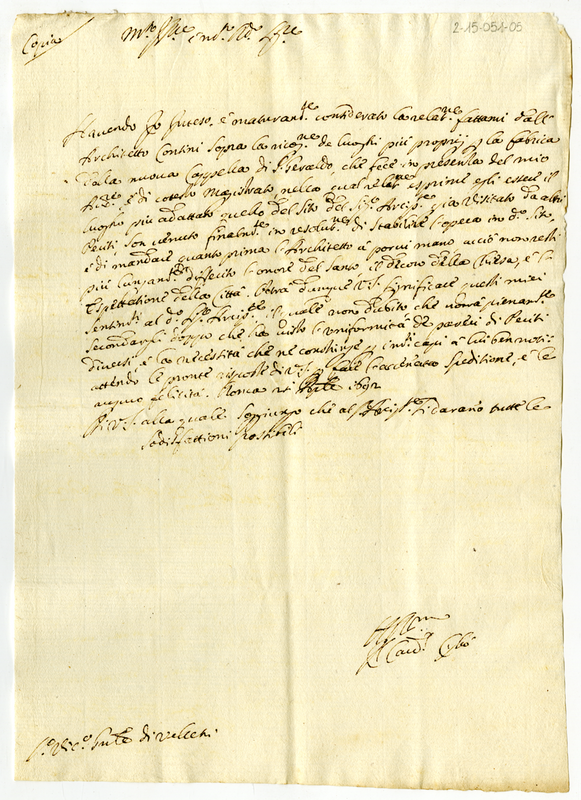 2-15-051-05
Copia
M.to Ill.re e m.to R.do Sig.re
Havendo Io inteso, e maturam.te considerato la relat.ne fattami dall'
Architetto Contini sopra la ricog.ne de luoghi più proprij p la fabrica
della nuova Cappella di S. Geraldo, che fece in presenza del mio
e di cotesto Magistrato nella qual relat.ne esprime egli essere il
luogho più adattato quello del sito del S.r Arcip.te già visitato da altri
Periti, son venuto finalm.te in resolut.ne di stabilire l'opera in d.o sito,
e di mandare quanto prima l'Architetto a porvi mano acciò non resti
più lungam.te differito l'onore del Santo, il decoro della Chiesa, e l'
espettatione della Città. Potrà dunque V.S. significare questi miei
sentim.ti al d.o S.r Arcip.te il quale non dubito che vorrà pienam.te
secondarli doppo che ha visto l'uniformità de pareri di Periti
diversi, e la necessità che ne constringe p i motivi a lui ben noti:
attendo le pronte risposte di V.S. p fare l'accennato speditione, e le
auguro felicità. Roma 21
Di V.S. alla quale soggiungo che al S.r Arcip.te si daranno tutte le
sodisfattioni possibili
Il Card. Cybo
S.r Vic.o Gn.le di Velletri